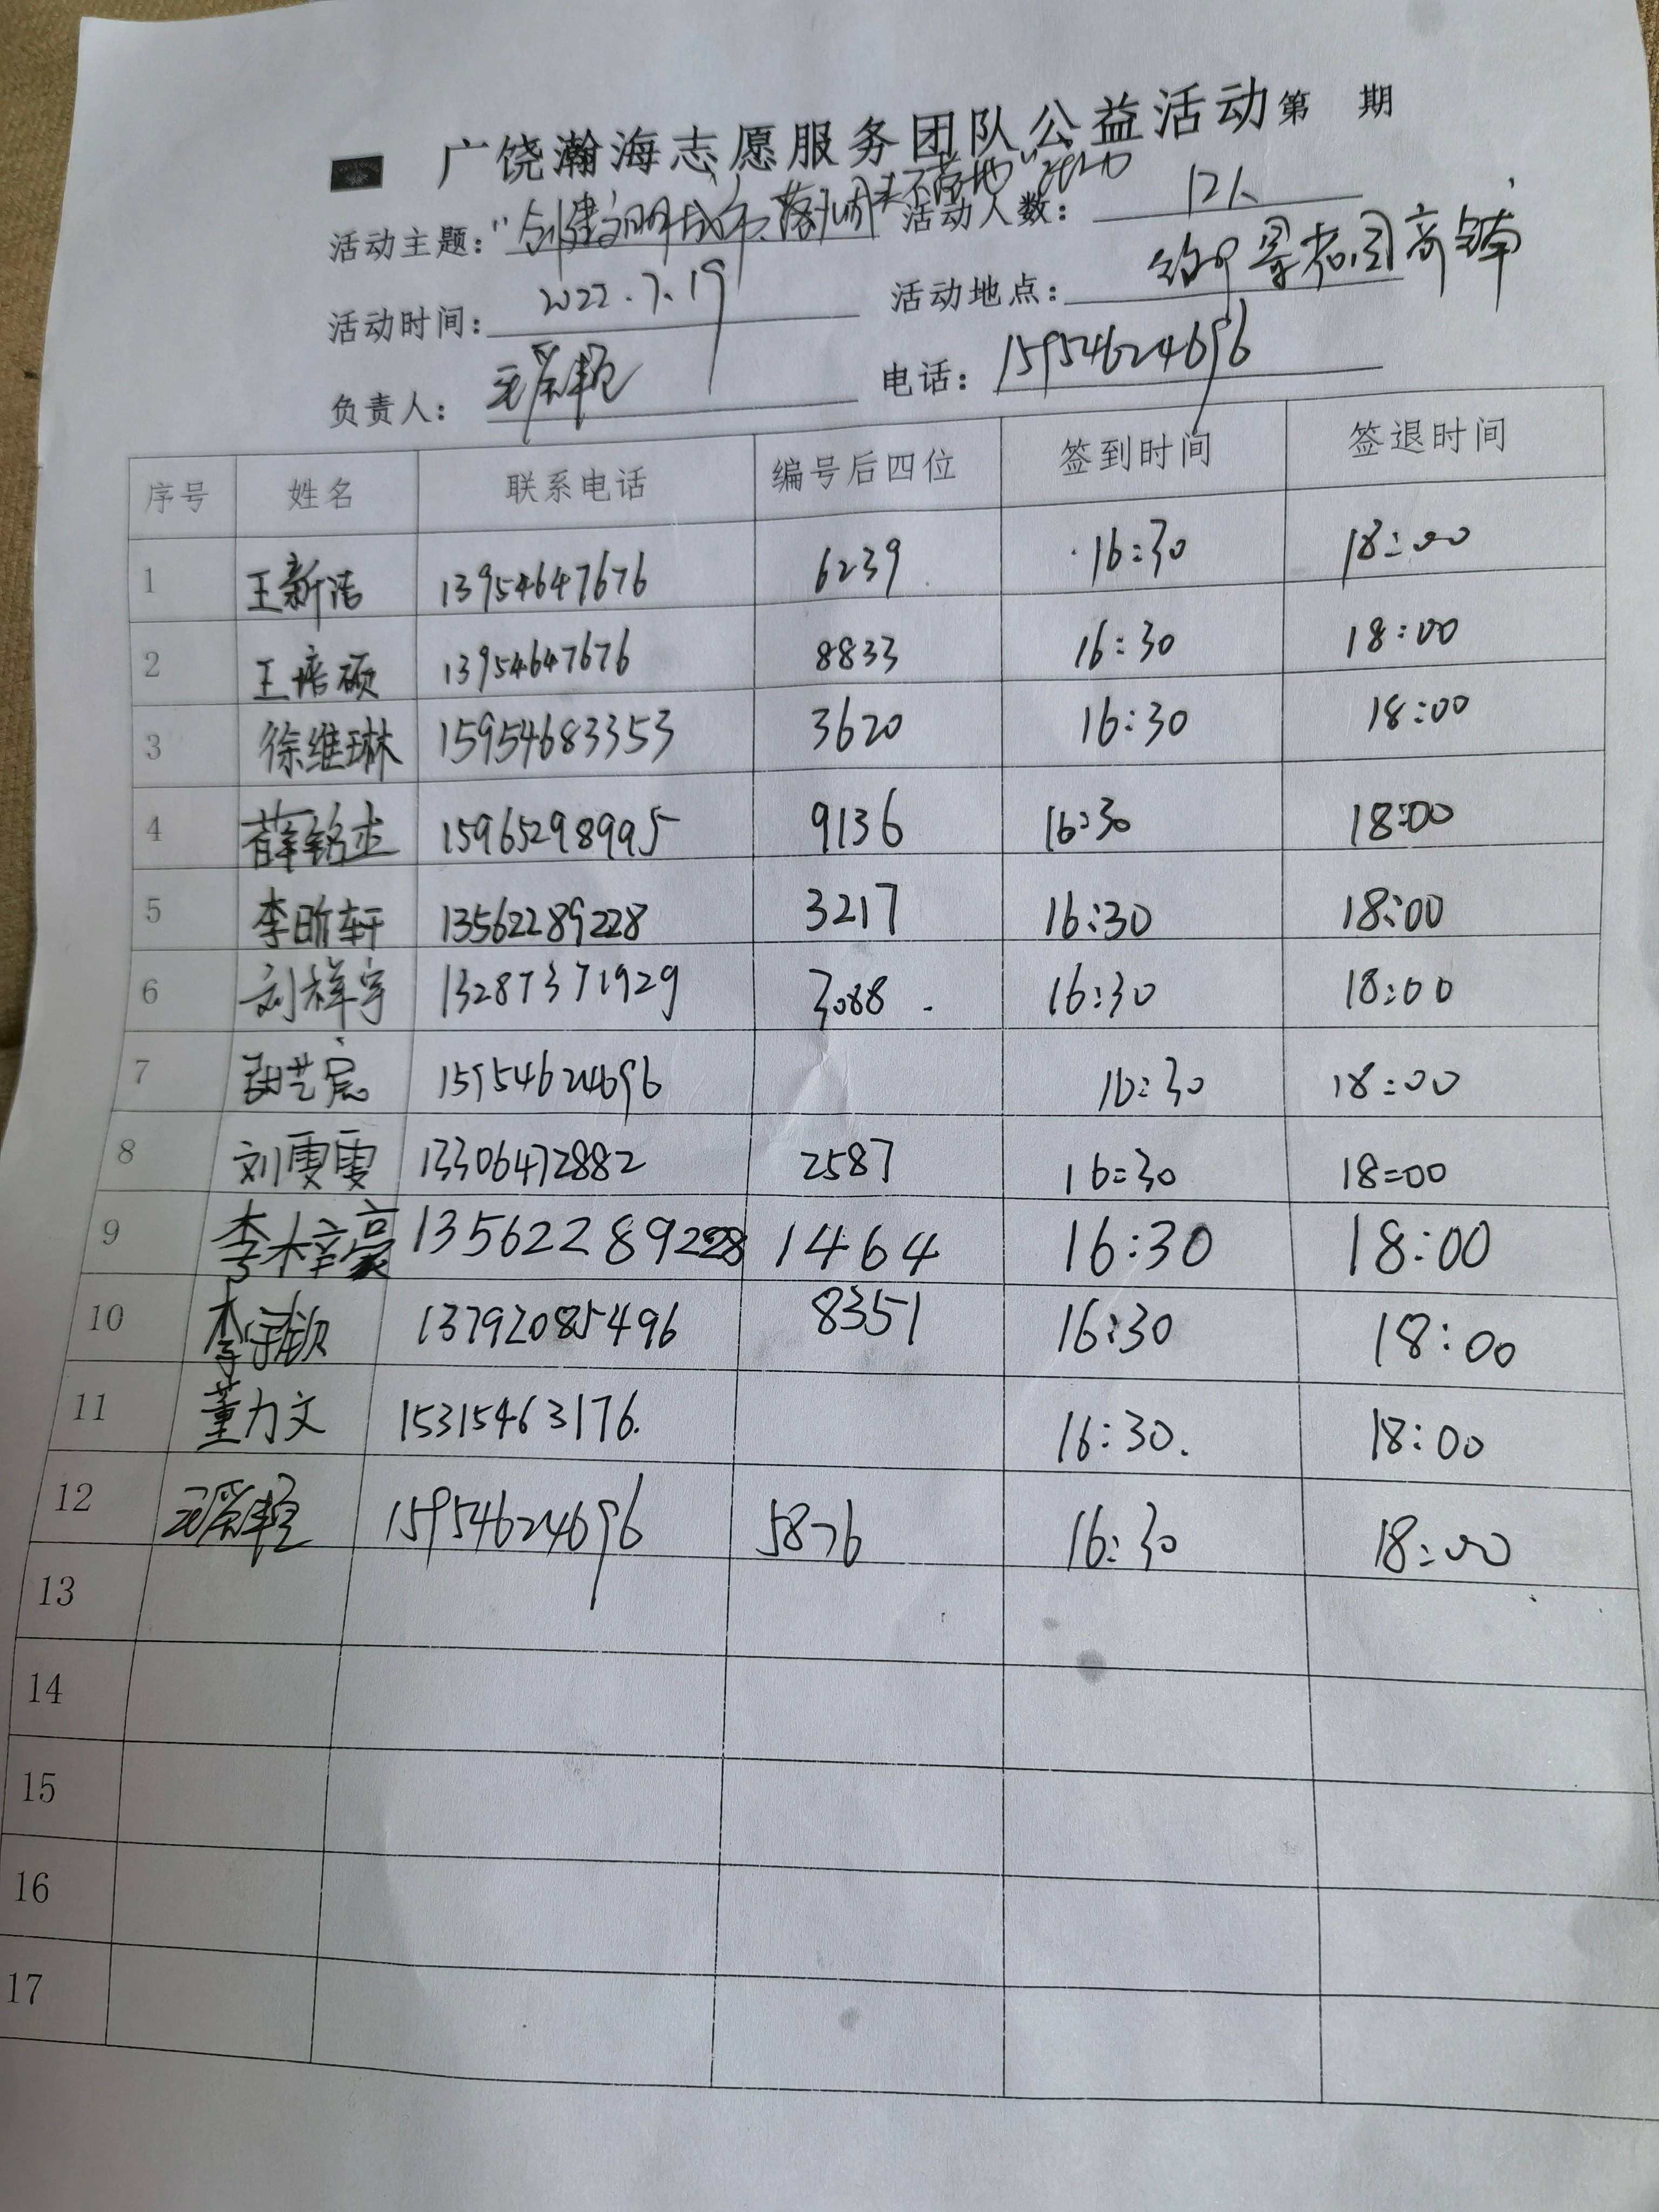 广饶瀚海志愿服务团队公益活动第 期
活动主题：“创建文明城市、落 不落地” 活动人数：12人
活动时间：2022.7.19 活动地点：
负责人： 电话：15954624696
序号 姓名 联系电话 编号后四位 签到时间 签退时间
1 王新洁 13954647676 6239 16:30 18:00
2 王培硕 13954647676 8833 16:30 18:00
3 徐维琳 15954683353 3620 16:30 18:00
4 薛铭 15965298995 9136 16:30 18:00
5 李昕轩 13562289228 3217 16:30 18:00
6 刘祥宇 13287371929 3088 16:30 18:00
7 15954624696 16:30 18:00
8 刘雯雯 13306472882 2587 16:30 18:00
9 李梓豪 13562289228 1464 16:30 18:00
10 李 13792085496 8351 16:30 18:00
11 董力文 15315463176. 16:30. 18:00
12 15954624696 5876 16:30 18:00
13
14
15
16
17